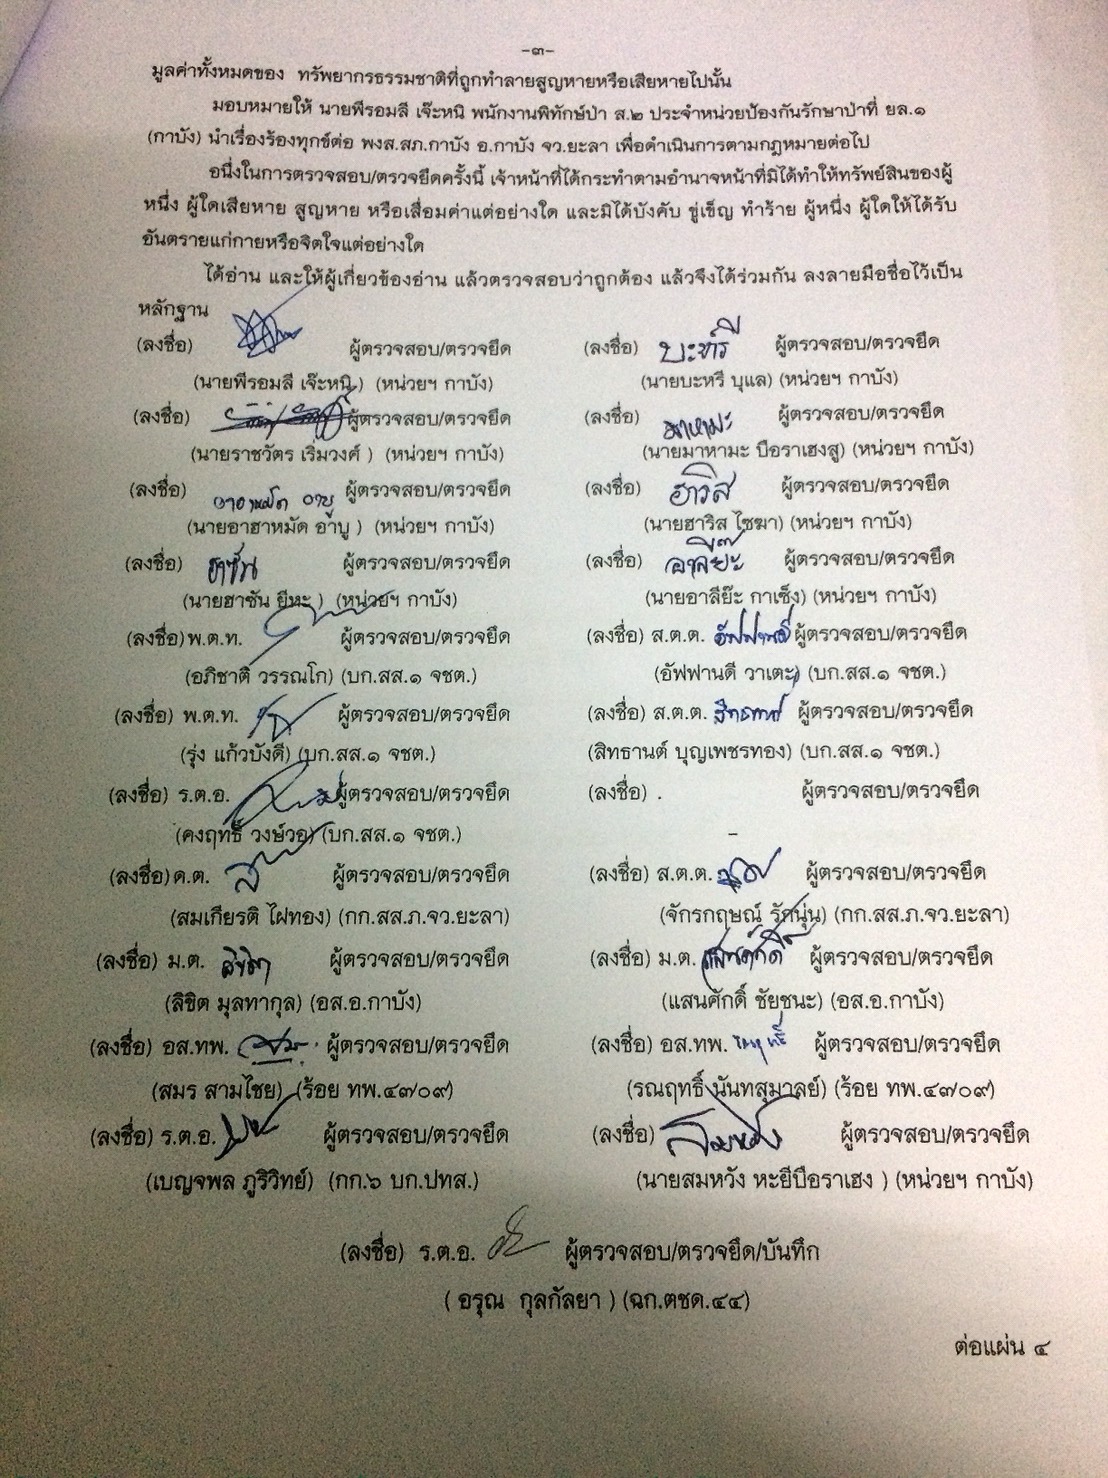 -๓-
มูลค่าทั้งหมดของ ทรัพยากรธรรมชาติที่ถูกทำลายสูญหายหรือเสียหายไปนั้น
มอบหมายให้ นายพีรอมลี เจ๊ะหนิ พนักงานพิทักษ์ป่า ส.๒ ประจำหน่วยป้องกันรักษาป่าที่ ยล.๑
(กาบัง) นำเรื่องร้องทุกข์ต่อ พงส.สภ.กาบัง อ.กาบัง จว.ยะลา เพื่อดำเนินการตามกฎหมายต่อไป
อนึ่งในการตรวจสอบ/ตรวจยึดครั้งนี้ เจ้าหน้าที่ได้กระทำตามอำนาจหน้าที่มิได้ทำให้ทรัพย์สินของผู้
หนึ่ง ผู้ใดเสียหาย สูญหาย หรือเสื่อมค่าแต่อย่างใด และมิได้บังคับ ขู่เข็ญ ทำร้าย ผู้หนึ่ง ผู้ใดให้ได้รับ
อันตรายแก่กายหรือจิตใจแต่อย่างใด
ได้อ่าน และให้ผู้เกี่ยวข้องอ่าน แล้วตรวจสอบว่าถูกต้อง แล้วจึงได้ร่วมกัน ลงลายมือชื่อไว้เป็น
หลักฐาน
(ลงชื่อ) ผู้ตรวจสอบ/ตรวจยึด (ลงชื่อ) บะหรี ผู้ตรวจสอบ/ตรวจยึด
(นายพีรอมลี เจ๊ะหนิ ) (หน่วยฯ กาบัง) (นายบะหรี บุแล) (หน่วยฯ กาบัง)
(ลงชื่อ) ผู้ตรวจสอบ/ตรวจยึด (ลงชื่อ) มาหามะ ผู้ตรวจสอบ/ตรวจยึด
(นายราชวัตร เริ่มวงศ์ ) (หน่วยฯ กาบัง) (นายมาหามะ บือราเฮงสู) (หน่วยฯ กาบัง)
(ลงชื่อ) อาฮาหมัด อาบู ผู้ตรวจสอบ/ตรวจยึด (ลงชื่อ) ฮาริส ผู้ตรวจสอบ/ตรวจยึด
(นายอาฮาหมัด อาบู ) (หน่วยฯ กาบัง) (นายฮาริส ไซฆา) (หน่วยฯ กาบัง)
(ลงชื่อ) ฮาซัน ผู้ตรวจสอบ/ตรวจยึด (ลงชื่อ) อาลีย๊ะ ผู้ตรวจสอบ/ตรวจยึด
(นายฮาซัน ยีหะ ) (หน่วยฯ กาบัง) (นายอาลีย๊ะ กาเซ็ง) (หน่วยฯ กาบัง)
(ลงชื่อ) พ.ต.ท. ผู้ตรวจสอบ/ตรวจยึด (ลงชื่อ) ส.ต.ต. อัฟฟานดี ผู้ตรวจสอบ/ตรวจยึด
(อภิชาติ วรรณโก) (บก.สส.๑ จชต.) (อัฟฟานดี วาเตะ) (บก.สส.๑ จชต.)
(ลงชื่อ) พ.ต.ท. ผู้ตรวจสอบ/ตรวจยึด (ลงชื่อ) ส.ต.ต. สิทธานต์ ผู้ตรวจสอบ/ตรวจยึด
(รุ่ง แก้วบังดี) (บก.สส.๑ จชต.) (สิทธานต์ บุญเพชรทอง) (บก.สส.๑ จชต.)
(ลงชื่อ) ร.ต.อ. ผู้ตรวจสอบ/ตรวจยึด (ลงชื่อ) . ผู้ตรวจสอบ/ตรวจยึด
(คงฤทธิ์ วงษ์วอ) (บก.สส.๑ จชต.) -
(ลงชื่อ) ด.ต. ผู้ตรวจสอบ/ตรวจยึด (ลงชื่อ) ส.ต.ต. ผู้ตรวจสอบ/ตรวจยึด
(สมเกียรติ ไฝทอง) (กก.สส.ภ.จว.ยะลา) (จักรกฤษณ์ รักนุ่น) (กก.สส.ภ.จว.ยะลา)
(ลงชื่อ) ม.ต. ลิขิต ผู้ตรวจสอบ/ตรวจยึด (ลงชื่อ) ม.ต. แสนศักดิ์ ผู้ตรวจสอบ/ตรวจยึด
(ลิขิต มุลทากุล) (อส.อ.กาบัง) (แสนศักดิ์ ชัยชนะ) (อส.อ.กาบัง)
(ลงชื่อ) อส.ทพ. ผู้ตรวจสอบ/ตรวจยึด (ลงชื่อ) อส.ทพ. ผู้ตรวจสอบ/ตรวจยึด
(สมร สามไชย) (ร้อย ทพ.๔๓๐๙) (รณฤทธิ์ นันทสุมาลย์) (ร้อย ทพ.๔๓๐๙)
(ลงชื่อ) ร.ต.อ. ผู้ตรวจสอบ/ตรวจยึด (ลงชื่อ) สมหวัง ผู้ตรวจสอบ/ตรวจยึด
(เบญจพล ภูริวิทย์) (กก.๖ บก.ปทส.) (นายสมหวัง หะยีบือราเฮง ) (หน่วยฯ กาบัง)
(ลงชื่อ) ร.ต.อ. ผู้ตรวจสอบ/ตรวจยึด/บันทึก
( อรุณ กุลกัลยา ) (ฉก.ตชด.๔๔)
ต่อแผ่น ๔